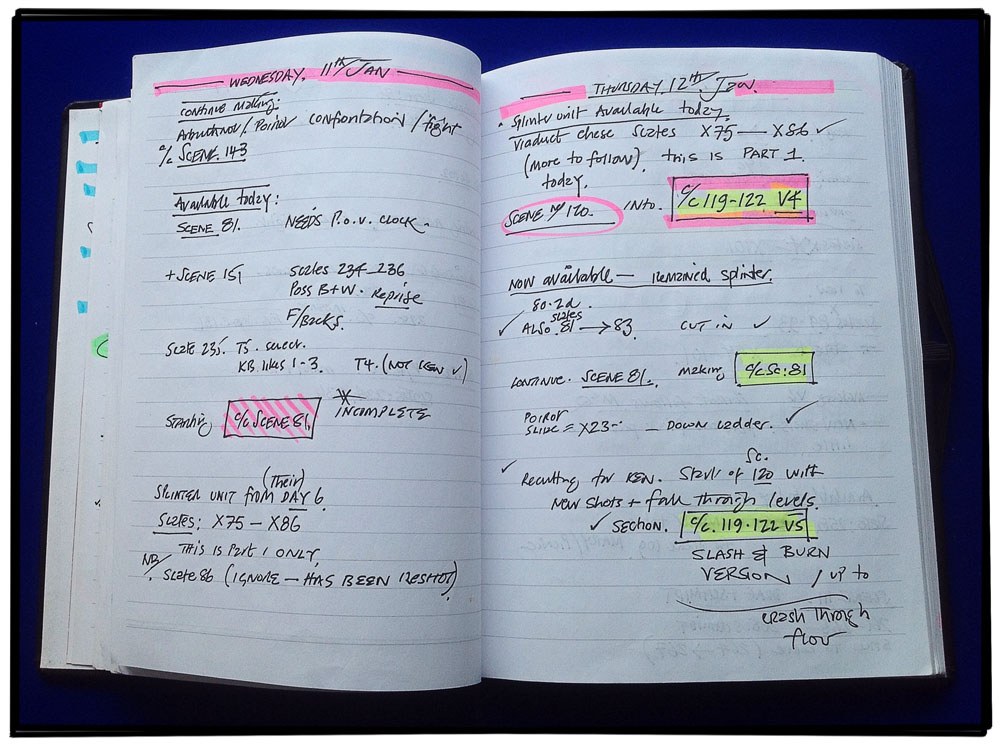 WEDNESDAY. 11TH JAN
CONTINUE MAKING:
Arbuthnot / Poirot confrontation / fight
a/c SCENE. 143
Available today:
SCENE 81. NEEDS P.O.V. CLOCK.
+ SCENE 151 Slates 234-236
Poss B+W. Reprise
F/Backs.
Slate 235. T3. select.
KB likes 1-3. T4. (NOT KEN ✓)
Starting c/c SCENE 81. INCOMPLETE
(Their)
SPLINTER UNIT from DAY 6
Slates: X75 - X86
This is Part 1 ONLY,
NB/. Slate 86 (IGNORE - HAS BEEN RESHOT).
THURSDAY. 12TH JAN.
• Splinter unit Available today.
Viaduct chese Slates X75 — X86 ✓
(more to follow) this is PART 1.
today.
SCENE No/ 120. INTO. c/c 119-122 V4
NOW available — remained splinter.
80.2a.
slates
✓ ALSO. 81 → 83 CUT IN ✓
CONTINUE. SCENE 81. making c/c Sc: 81
POIROT
SLIDE = X23- - DOWN Ladder. ✓
Sc.
✓ Recutting for KEN. Start of 120 with
New shots + fall through levels.
✓ SECTION. c/c. 119-122 V5
SLASH & BURN
VERSION / up to
crash through
floor